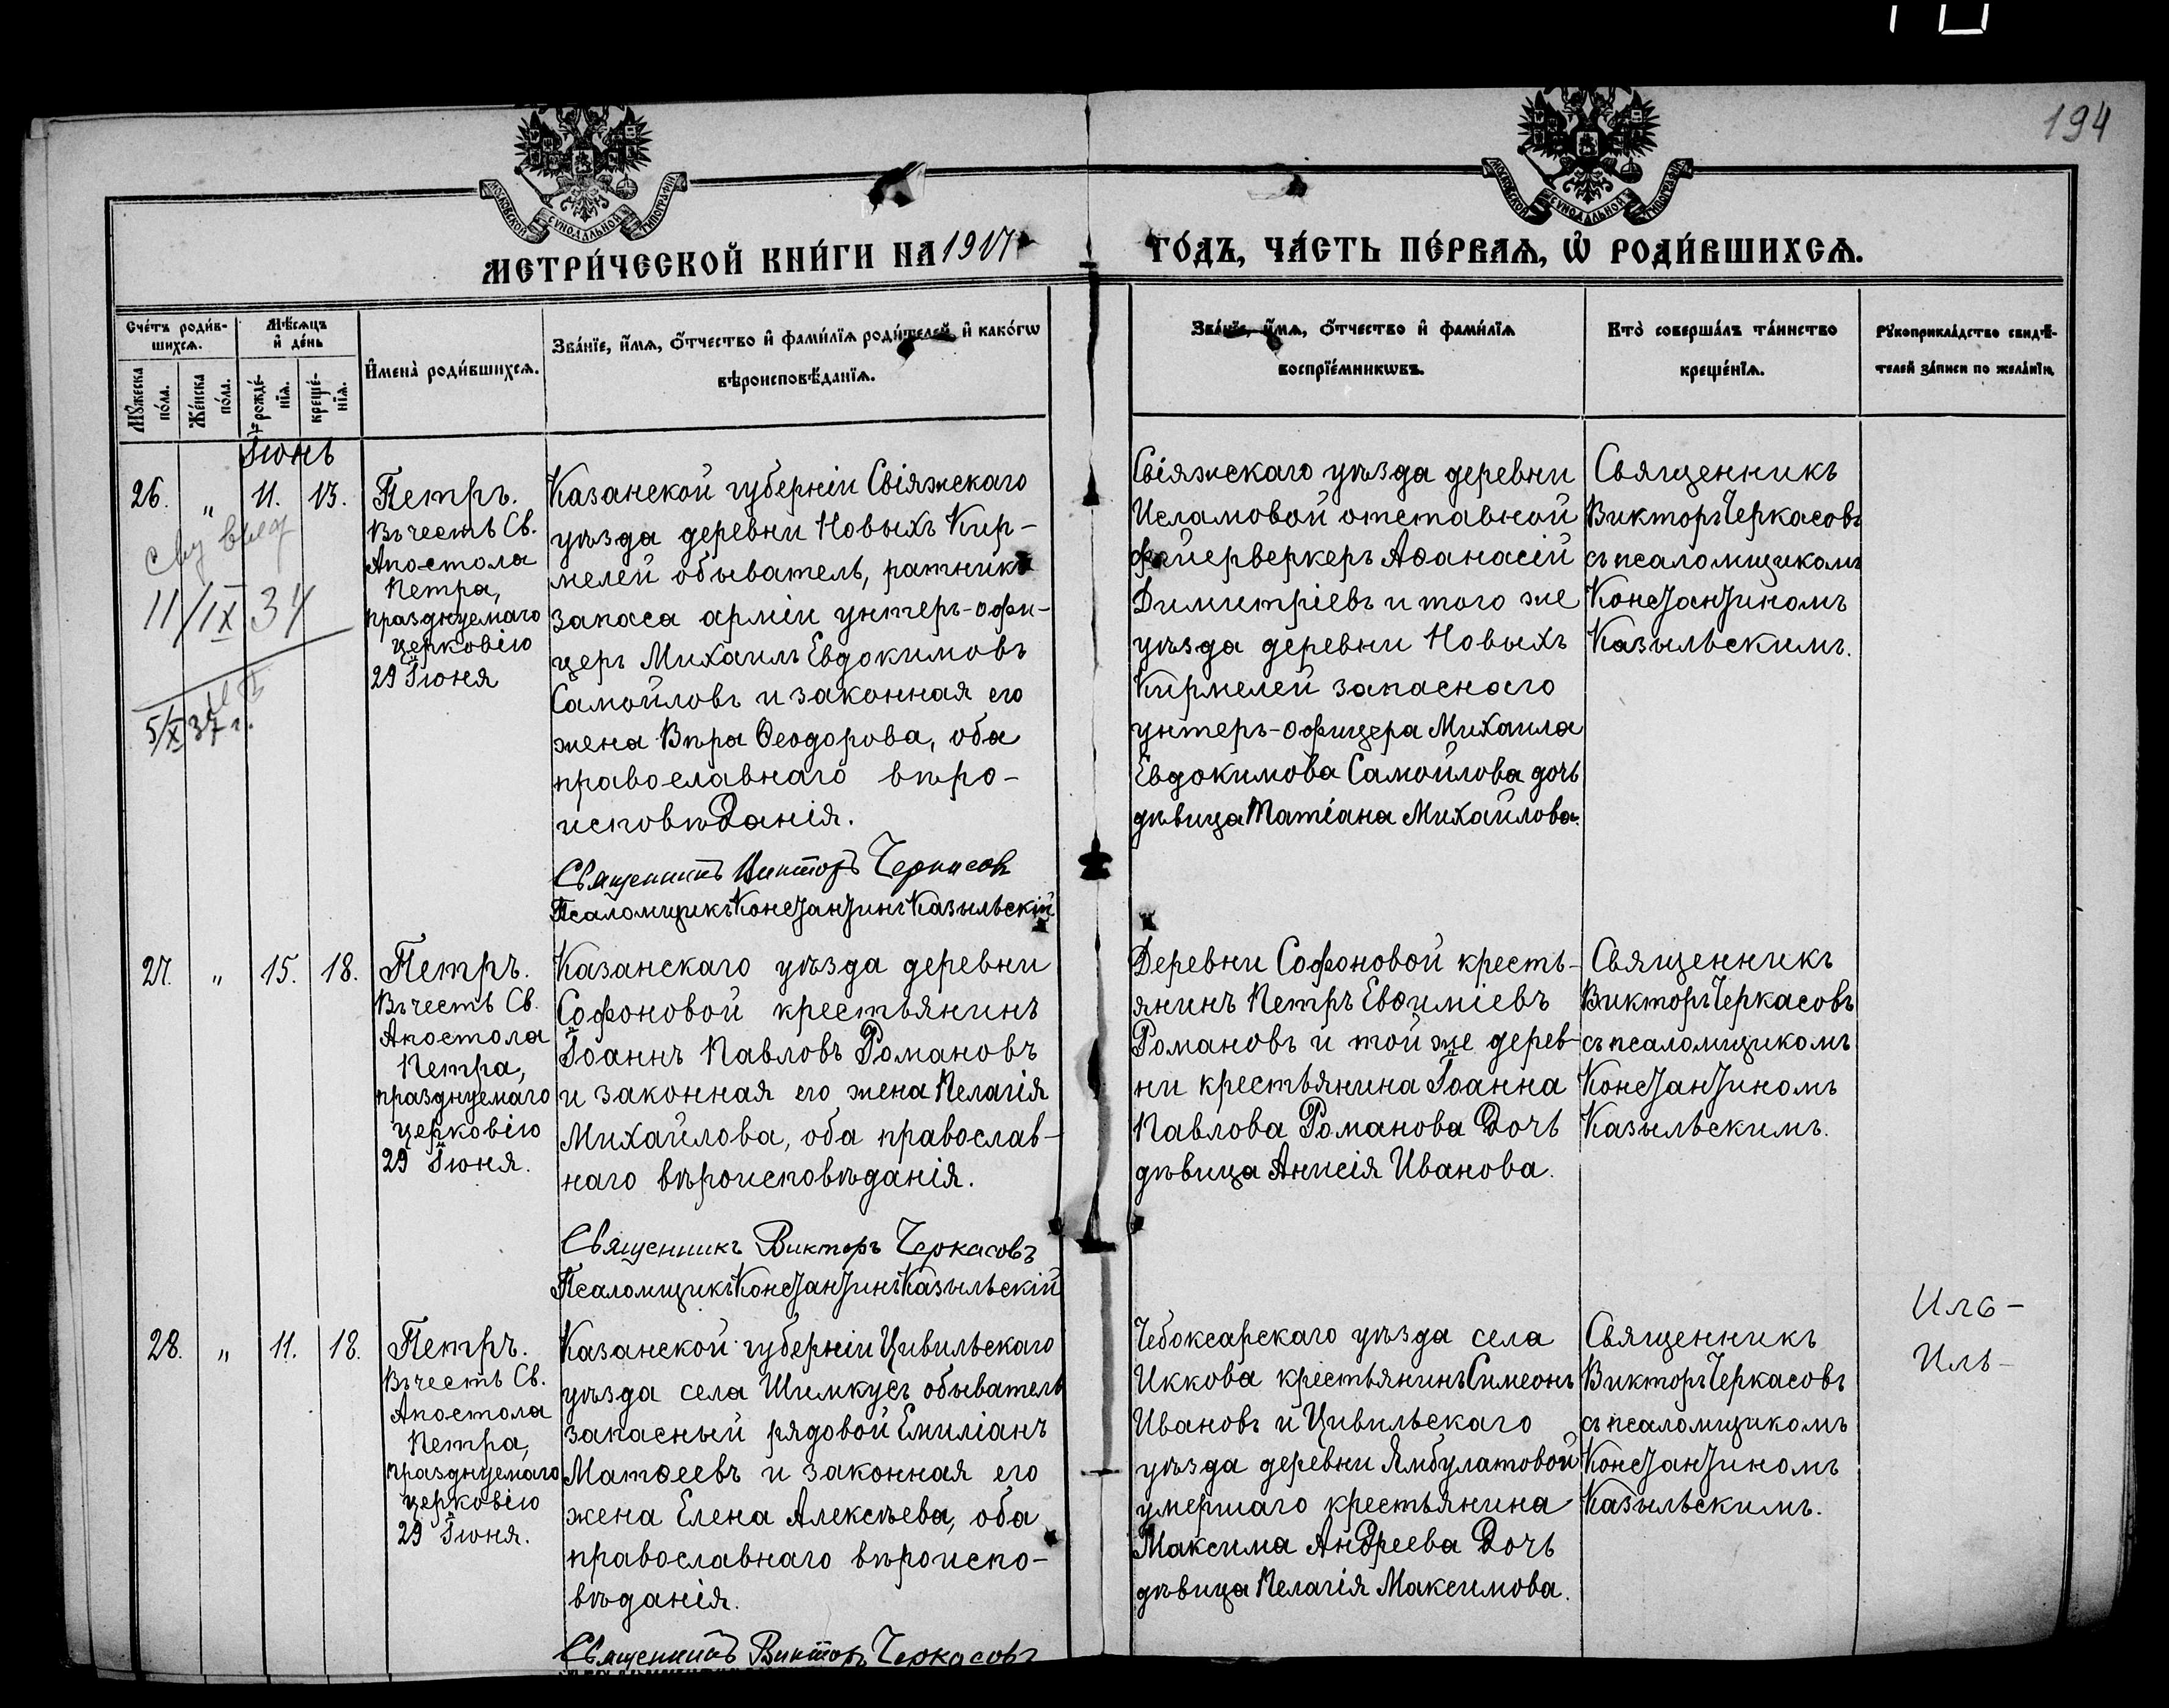 194
МОСКОВСКОЙ СУНОДАЛЬНОЙ ТИПОГРАФІИ
МОСКОВСКОЙ СУНОДАЛЬНОЙ ТИПОГРАФІИ
МЕТРИ́ЧЕСКОЙ КНИ́ГИ НА 1917
ГО́ДЪ, ЧА́СТЬ ПЕ́РВАѦ, Ѡ҆ РОДИ́ВШИХСѦ.
Сче́тъ роди́в-
шихсѧ.
Мꙋ́жеска
по́ла.
Же́нска
по́ла.
Мѣ́сѧцъ
и҆ де́нь
рожде́-
нїѧ.
креще́-
нїѧ.
И҆мена̀ роди́вшихсѧ.
Зва́нїе, и҆́мѧ, ѻ҆́тчество и҆ фами́лїѧ роди́телей, и҆ како́гѡ
вѣроисповѣ́данїѧ.
Зва́нїе, и҆́мѧ, ѻ҆́тчество и҆ фами́лїѧ
воспрїе́мникѡвъ.
Кто̀ соверша́лъ та́инство
креще́нїѧ.
Рꙋкоприкла́дство свидѣ́-
телей за́писи по жела́нїю.
Іюнь
26. „ 11. 13.
Петръ.
Въ честь Св.
Апостола
Петра,
празднуемаго
церковію
29 Іюня
11/IX 34
5/X 37 г.
Казанской губерніи Свіяжскаго
уѣзда деревни Новыхъ Кир-
мелей обыватель, ратникъ
запаса арміи унтеръ-офи-
церъ Михаилъ Евдокимовъ
Самойловъ и законная его
жена Вѣра Ѳеодорова, оба
православнаго вѣро-
исповѣданія.
Священникъ Викторъ Черкасовъ
Псаломщикъ Константинъ Казыльскій
Свіяжскаго уѣзда деревни
Исламовой отставной
фейерверкеръ Аѳанасій
Димитріевъ и того же
уѣзда деревни Новыхъ
Кирмелей запаснаго
унтеръ-офицера Михаила
Евдокимова Самойлова дочь
дѣвица Татіана Михайлова.
Священникъ
Викторъ Черкасовъ
съ псаломщикомъ
Константиномъ
Казыльскимъ.
27. „ 15. 18.
Петръ.
Въ честь Св.
Апостола
Петра,
празднуемаго
церковію
29 Іюня.
Казанскаго уѣзда деревни
Софоновой крестьянинъ
Іоаннъ Павловъ Романовъ
и законная его жена Пелагія
Михайлова, оба православ-
наго вѣроисповѣданія.
Священникъ Викторъ Черкасовъ
Псаломщикъ Константинъ Казыльскій
Деревни Софоновой кресть-
янинъ Петръ Евѳиміевъ
Романовъ и той же дерев-
ни крестьянина Іоанна
Павлова Романова дочь
дѣвица Анисія Иванова.
Священникъ
Викторъ Черкасовъ
съ псаломщикомъ
Константиномъ
Казыльскимъ.
28. „ 11. 18.
Петръ.
Въ честь Св.
Апостола
Петра,
празднуемаго
церковію
29 Іюня.
Казанской губерніи Цивильскаго
уѣзда села Шимкусъ обыватель
запасный рядовой Емиліанъ
Матѳеевъ и законная его
жена Елена Алексѣева, оба
православнаго вѣроиспо-
вѣданія.
Священникъ Викторъ Черкасовъ
Чебоксарскаго уѣзда села
Иккова крестьянинъ Симеонъ
Ивановъ и Цивильскаго
уѣзда деревни Ямбулатовой
умершаго крестьянина
Максима Андреева дочь
дѣвица Пелагія Максимова.
Священникъ
Викторъ Черкасовъ
съ псаломщикомъ
Константиномъ
Казыльскимъ.
Иль-
Иль-